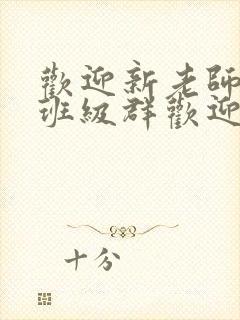 歡迎新老師
班級群歡迎
十分